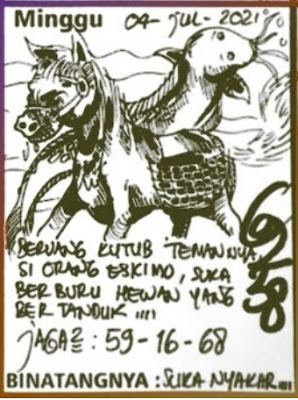 Minggu 04-JUL-2021
BERUANG KUTUB TEMANNYA
SI ORANG ESKIMO, SUKA
BERBURU HEWAN YANG
BERTANDUK !!!!
JAGA2 : 59-16-68
BINATANGNYA : SUKA NYAKAR...!!!!